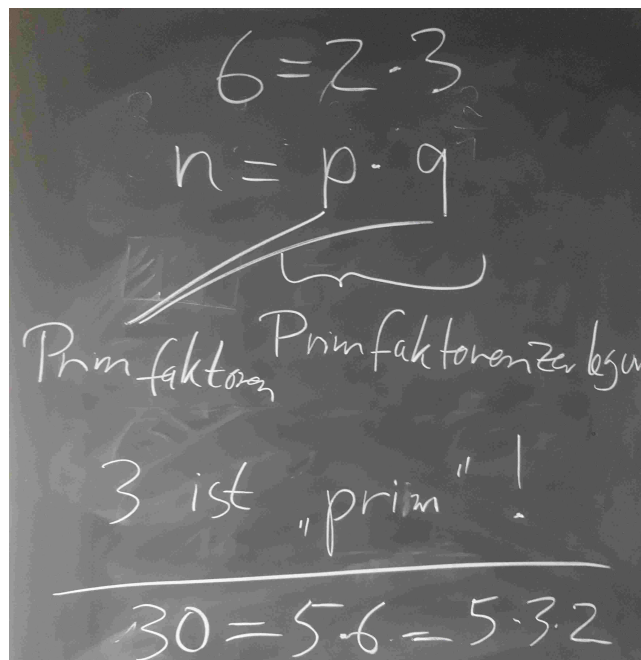 6 = 2 · 3
n = p · q
Primfaktoren Primfaktorenzerlegun
3 ist „prim“ !
30 = 5 · 6 = 5 · 3 · 2